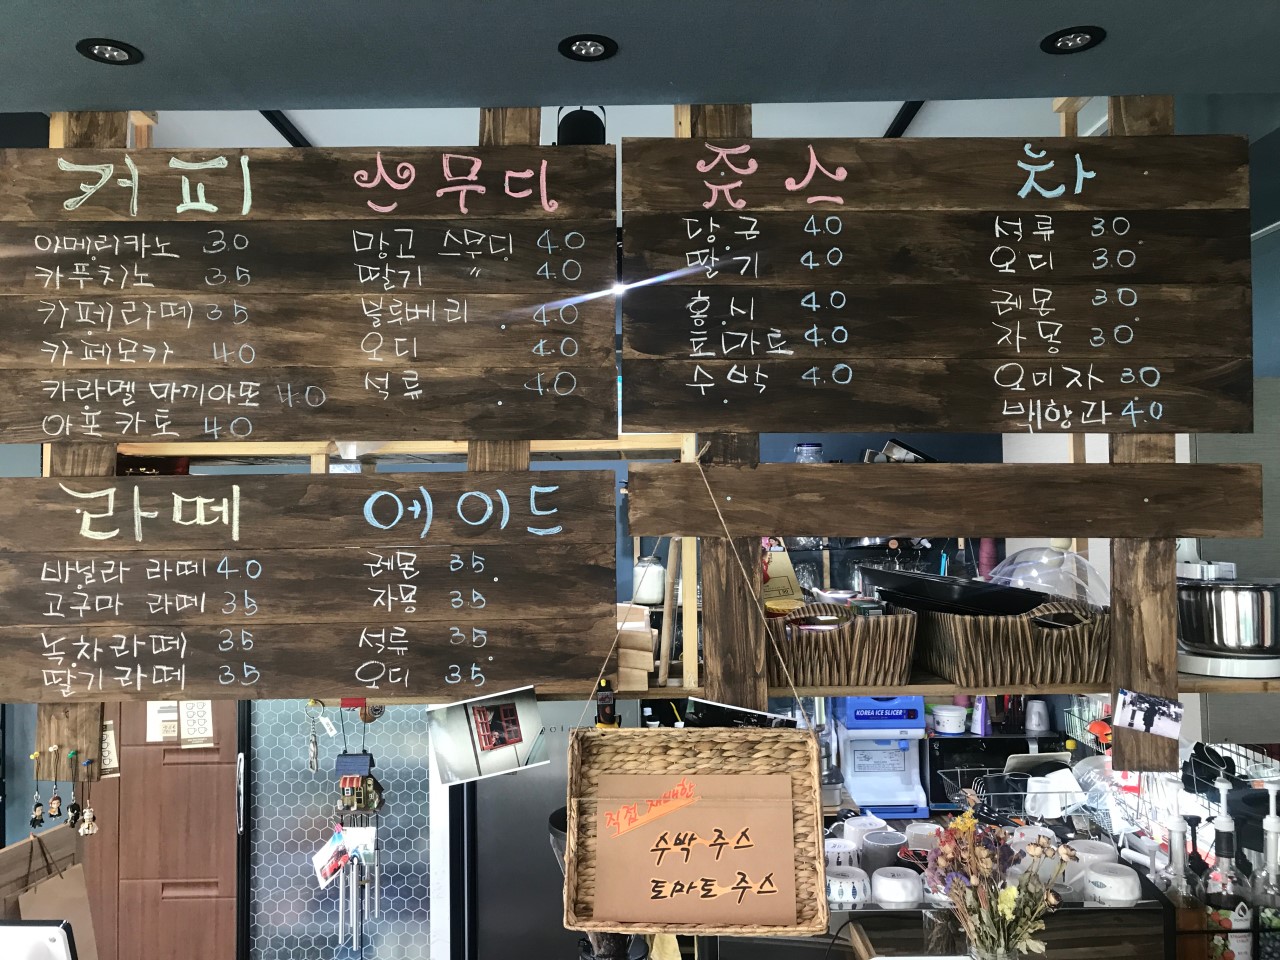 커피
아메리카노 3.0
카푸치노 3.5
카페라떼 3.5
카페모카 4.0
카라멜 마끼아또 4.0
아포카토 4.0
스무디
망고 스무디 4.0
딸기 〃 4.0
블루베리 4.0
오디 4.0
석류 4.0
쥬스
당근 4.0
딸기 4.0
홍시 4.0
토마토 4.0
수박 4.0
차
석류 3.0
오디 3.0
레몬 3.0
자몽 3.0
오미자 3.0
백향과 4.0
라떼
바닐라 라떼 4.0
고구마 라떼 3.5
녹차라떼 3.5
딸기라떼 3.5
에이드
레몬 3.5
자몽 3.5
석류 3.5
오디 3.5
KOREA ICE SLICER
직접 재배한
수박 주스
토마토 주스